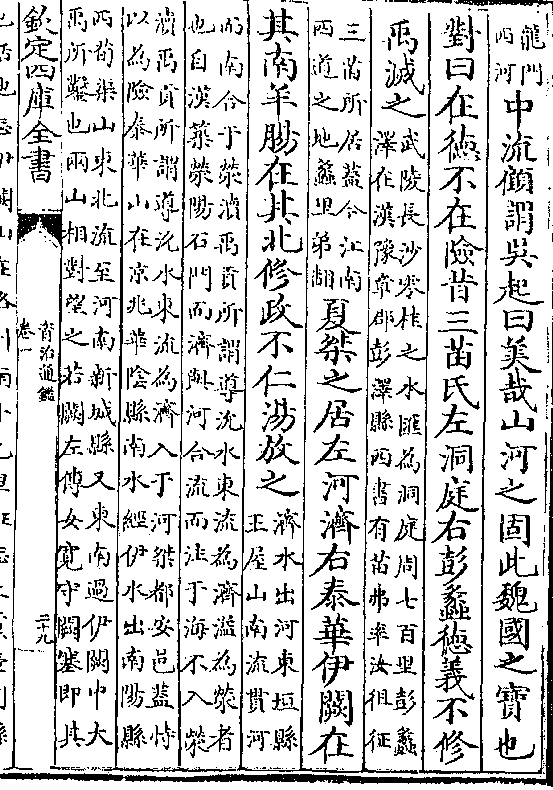 龍門
西河
中流顧謂吳起曰美哉山河之固此魏國之寶也
對曰在徳不在險昔三苗氏左洞庭右彭蠡徳義不修
禹滅之
武陵長沙零桂之水匯為洞庭周七百里彭蠡
澤在漢豫章郡彭澤縣西書有苗弗率汝徂征
三苗所居蓋今江南
西道之地蠡里弟翻
夏桀之居左河濟右泰華伊闕在
其南羊腸在其北修政不仁湯放之
濟水出河東垣縣
王屋山南流貫河
而南合于滎瀆禹貢所謂導沇水東流為濟溢為滎者
也自漢築滎陽石門而濟與河合流而注于海不入滎
瀆禹貢所謂導沇水東流為濟入于河桀都安邑蓋恃
以為險泰華山在京兆華陰縣南水經伊水出南陽縣
西荀渠山東北流至河南新城縣又東南過伊闕中大
禹所鑿也兩山相對望之若闕左傳女寛守闕塞即其
欽定四庫全書
資治通鑑
卷一
二十九